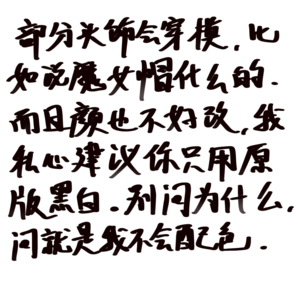 部分头饰会穿模，比
如说魔女帽什么的.
而且颜也不好改，我
私心建议你只用原
版黑白.别问为什么，
问就是我不会配色.